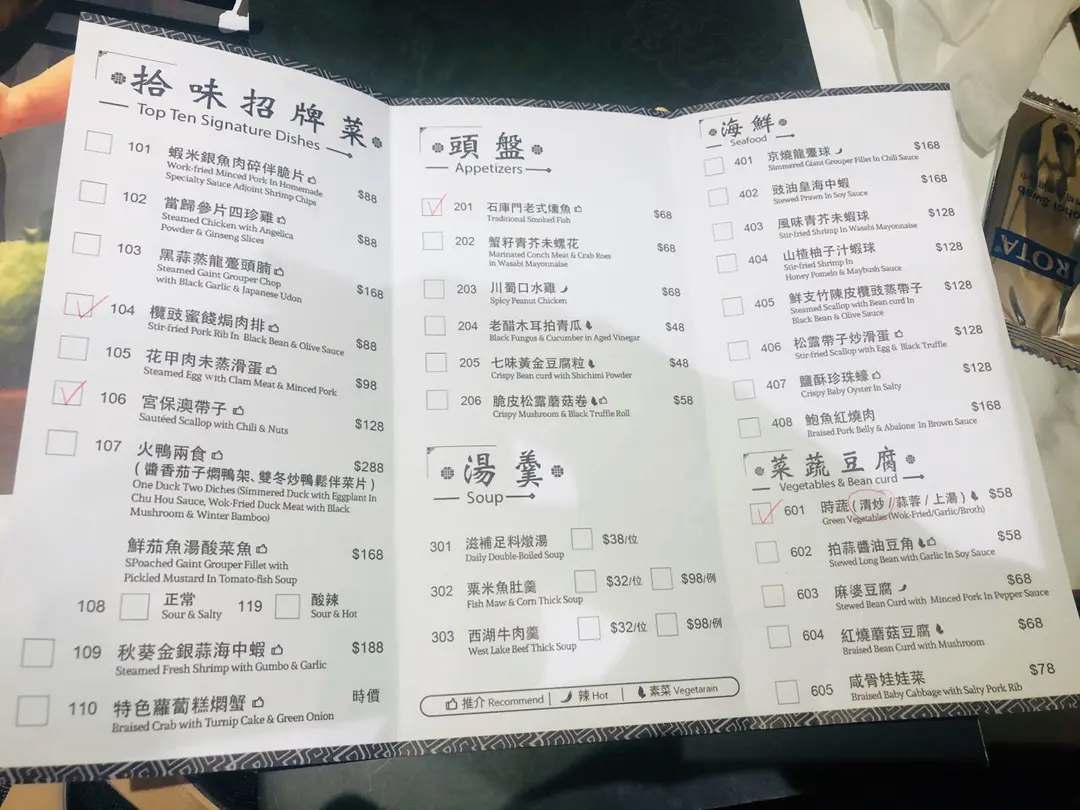 拾味招牌菜
Top Ten Signature Dishes
101 蝦米銀魚肉碎伴脆片 $88
Work-fried Minced Pork In Homemade
Specialty Sauce Adjoint Shrimp Chips
102 當歸參片四珍雞 $88
Steamed Chicken with Angelica
Powder & Ginseng Slices
103 黑蒜蒸龍躉頭腩 $168
Steamed Gaint Grouper Chop
with Black Garlic & Japanese Udon
104 欖豉蜜餞焗肉排 $88
Stir-fried Pork Rib In Black Bean & Olive Sauce
105 花甲肉末蒸滑蛋 $98
Steamed Egg with Clam Meat & Minced Pork
106 宮保澳帶子 $128
Sautéed Scallop with Chili & Nuts
107 火鴨兩食 $288
(醬香茄子燜鴨架、雙冬炒鴨鬆伴菜片)
One Duck Two Dishes (Simmered Duck with Eggplant In
Chu Hou Sauce, Wok-Fried Duck Meat with Black
Mushroom & Winter Bamboo)
鮮茄魚湯酸菜魚 $168
SPoached Gaint Grouper Fillet with
Pickled Mustard In Tomato-fish Soup
108 正常 119 酸辣
Sour & Salty Sour & Hot
109 秋葵金銀蒜海中蝦 $188
Steamed Fresh Shrimp with Gumbo & Garlic
110 特色蘿蔔糕燜蟹 時價
Braised Crab with Turnip Cake & Green Onion
頭盤
Appetizers
201 石庫門老式燻魚 $68
Traditional Smoked Fish
202 蟹籽青芥末螺花 $68
Marinated Conch Meat & Crab Roes
in Wasabi Mayonnaise
203 川蜀口水雞 $68
Spicy Peanut Chicken
204 老醋木耳拍青瓜 $48
Black Fungus & Cucumber in Aged Vinegar
205 七味黃金豆腐粒 $48
Crispy Bean curd with Shichimi Powder
206 脆皮松露蘑菇卷 $58
Crispy Mushroom & Black Truffle Roll
湯羹
Soup
301 滋補足料燉湯 $38/位
Daily Double-Boiled Soup
302 粟米魚肚羹 $32/位 $98/例
Fish Maw & Corn Thick Soup
303 西湖牛肉羹 $32/位 $98/例
West Lake Beef Thick Soup
推介 Recommend | 辣 Hot | 素菜 Vegetarain
海鮮
Seafood
401 京燒龍躉球 $168
Simmered Giant Grouper Fillet In Chili Sauce
402 豉油皇海中蝦 $168
Stewed Prawn In Soy Sauce
403 風味青芥末蝦球 $128
Stir-fried Shrimp In Wasabi Mayonnaise
404 山楂柚子汁蝦球 $128
Stir-fried Shrimp In
Honey Pomelo & Maybush Sauce
405 鮮支竹陳皮欖豉蒸帶子 $128
Steamed Scallop with Bean curd In
Black Bean & Olive Sauce
406 松露帶子炒滑蛋 $128
Stir-fried Scallop with Egg & Black Truffle
407 鹽酥珍珠蠔 $128
Crispy Baby Oyster In Salty
408 鮑魚紅燒肉 $168
Braised Pork Belly & Abalone In Brown Sauce
菜蔬豆腐
Vegetables & Bean curd
601 時蔬(清炒/蒜蓉/上湯) $58
Green Vegetables (Wok-Fried/Garlic/Broth)
602 拍蒜醬油豆角 $58
Stewed Long Bean with Garlic In Soy Sauce
603 麻婆豆腐 $68
Stewed Bean Curd with Minced Pork In Pepper Sauce
604 紅燒蘑菇豆腐 $68
Braised Bean Curd with Mushroom
605 咸骨娃娃菜 $78
Braised Baby Cabbage with Salty Pork Rib
ROTA